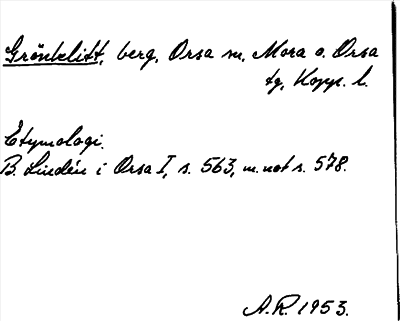 Grönklitt, berg, Orsa sn, Mora o. Orsa
tg, Kopp. l.
Etymologi.
B. Lindén i Orsa I, s. 563, m. not s. 578.
A.R. 1953.